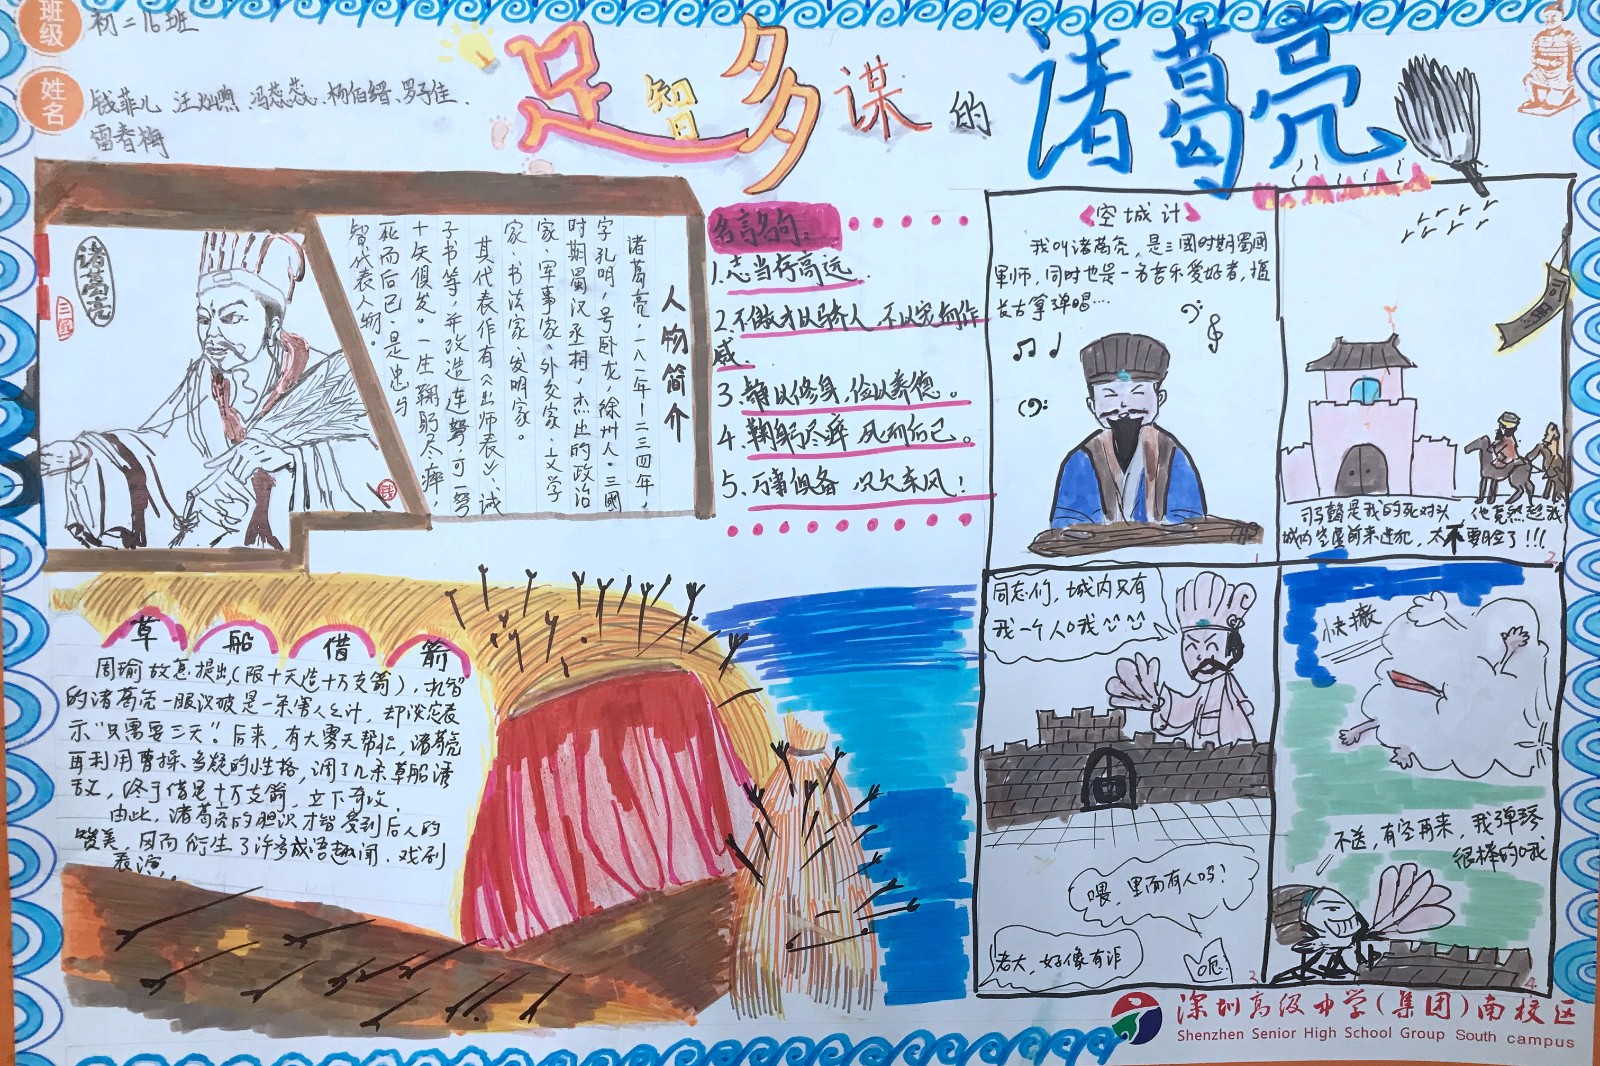 班级
初二16班
姓名
钱菲儿 汪灿煦 冯蕊蕊、杨伯缙、罗予佳、
雷春梅
足智多谋的诸葛亮
诸葛亮
人物简介
诸葛亮，一八一年—二三四年，
字孔明，号卧龙，徐州人。三國
时期蜀汉丞相，杰出的政治
家、军事家、外交家、文学
家、书法家、发明家。
其代表作有《出师表》、《诫
子书》等，并改造连弩，可一弩
十矢俱发。一生鞠躬尽瘁，
死而后已，是忠与
智代表人物。
名言名句：
1.志当存高远.
2.不傲才以骄人，不以宠而作
威.
3.静以修身，俭以养德。
4.鞠躬尽瘁 死而后已。
5.万事俱备 只欠东风！
《空城计》
我叫诸葛亮，是三國时期蜀國
軍师，同时也是一名音乐爱好者，擅
长古拿弹唱…
1
司
司马懿是我的死对头，他竟然趁我
城内空虚前来进犯，太不要脸了!!!
2
同志们，城内只有
我一个人哦
喂，里面有人吗？
老大，好像有诈
呃
3
快撤
不送，有空再来，我弹琴
很棒的哦
4
草船借箭
周瑜故意提出（限十天造十万支箭），机智
的诸葛亮一眼识破是一条害人之计，却淡定表
示“只需要三天”。后来，有大雾天帮忙，诸葛亮
再利用曹操多疑的性格，调了几条草船诱
敌，终于借足十万支箭，立下奇功.
由此，诸葛亮的胆识才智受到后人的
赞美，因而衍生了许多成语趣闻、戏剧
表演.
深圳高级中学(集团)南校区
Shenzhen Senior High School Group South campus